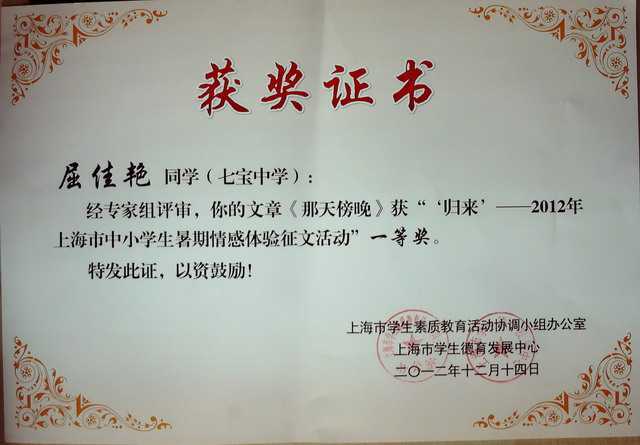 获奖证书
屈佳艳 同学（七宝中学）：
经专家组评审，你的文章《那天傍晚》获“‘归来’——2012年
上海市中小学生暑期情感体验征文活动”一等奖。
特发此证，以资鼓励！
上海市学生素质教育活动协调小组办公室
上海市学生德育发展中心
二〇一二年十二月十四日